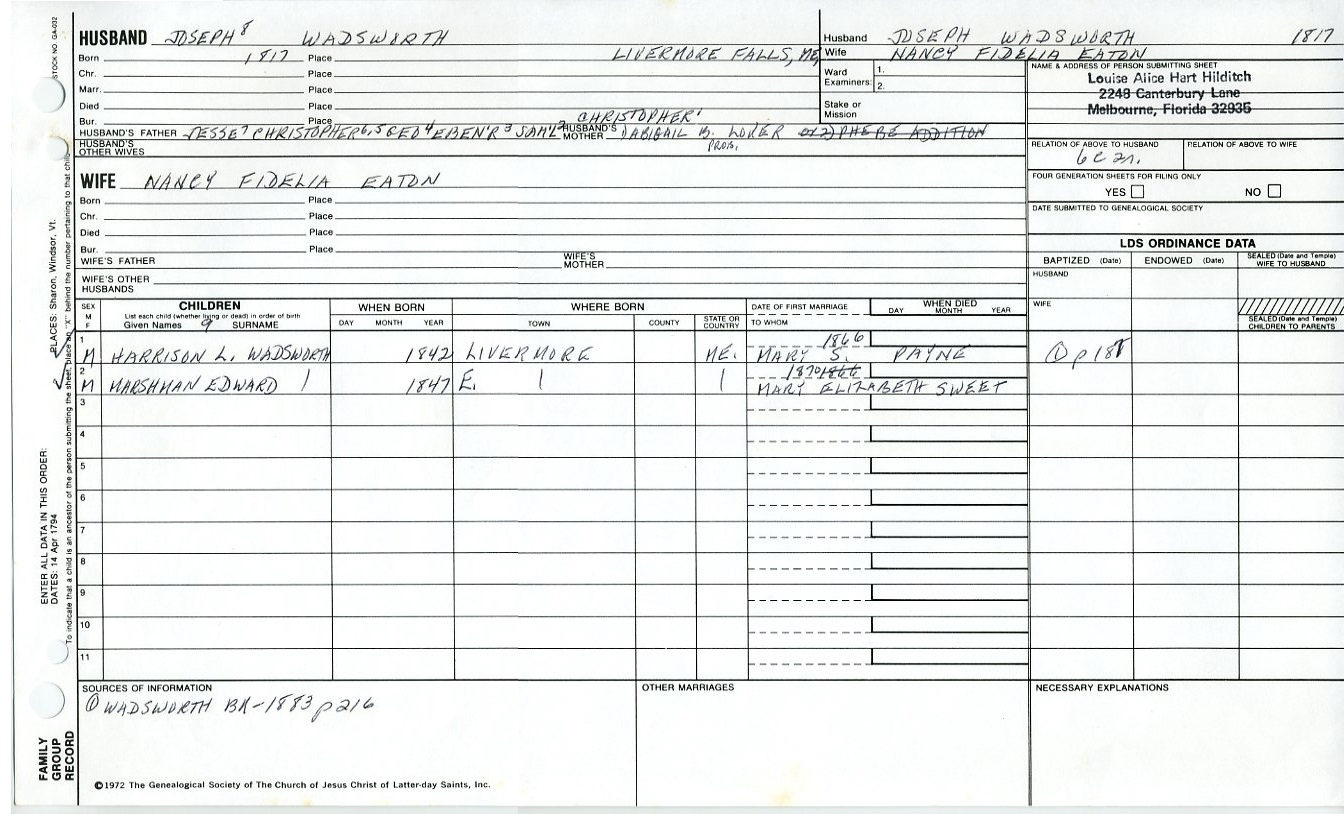 STOCK NO. GA-032
HUSBAND JOSEPH 8 WADSWORTH
Born 1817 Place LIVERMORE FALLS, ME
Chr. Place
Marr. Place
Died Place
Bur. Place CHRISTOPHER 1
HUSBAND'S FATHER JESSE 7 CHRISTOPHER 6,5 GED 4 EBEN'R 3 SAM'L 2 HUSBAND'S MOTHER 1) ABIGAIL B. or 2) PHEBE ADDITION
PROB.
HUSBAND'S OTHER WIVES
Husband JOSEPH WADSWORTH 1817
Wife NANCY FIDELIA EATON
Ward Examiners: 1.
2.
Stake or Mission
NAME & ADDRESS OF PERSON SUBMITTING SHEET
Louise Alice Hart Hilditch
2248 Canterbury Lane
Melbourne, Florida 32935
RELATION OF ABOVE TO HUSBAND RELATION OF ABOVE TO WIFE
6 C 2r.
FOUR GENERATION SHEETS FOR FILING ONLY
YES NO
DATE SUBMITTED TO GENEALOGICAL SOCIETY
WIFE NANCY FIDELIA EATON
Born Place
Chr. Place
Died Place
Bur. Place
WIFE'S FATHER WIFE'S MOTHER
WIFE'S OTHER HUSBANDS
LDS ORDINANCE DATA
BAPTIZED (Date) ENDOWED (Date) SEALED (Date and Temple) WIFE TO HUSBAND
HUSBAND
WIFE
SEALED (Date and Temple) CHILDREN TO PARENTS
SEX M F CHILDREN WHEN BORN WHERE BORN DATE OF FIRST MARRIAGE WHEN DIED
List each child (whether living or dead) in order of birth
Given Names 9 SURNAME DAY MONTH YEAR TOWN COUNTY STATE OR COUNTRY TO WHOM DAY MONTH YEAR
1 1866
M HARRISON L. WADSWORTH 1842 LIVERMORE ME. MARY S. PAYNE ① p 188
2 1870 1866
M MARSHMAN EDWARD | 1847 E. | | MARY ELIZABETH SWEET
3
4
5
6
7
8
9
10
11
SOURCES OF INFORMATION
① WADSWORTH BK-1883 p 216
OTHER MARRIAGES
NECESSARY EXPLANATIONS
©1972 The Genealogical Society of The Church of Jesus Christ of Latter-day Saints, Inc.
FAMILY GROUP RECORD
ENTER ALL DATA IN THIS ORDER:
DATES: 14 Apr 1794
PLACES: Sharon, Windsor, Vt.
To indicate that a child is an ancestor of the person submitting the sheet, place an "X" behind the number pertaining to that child.